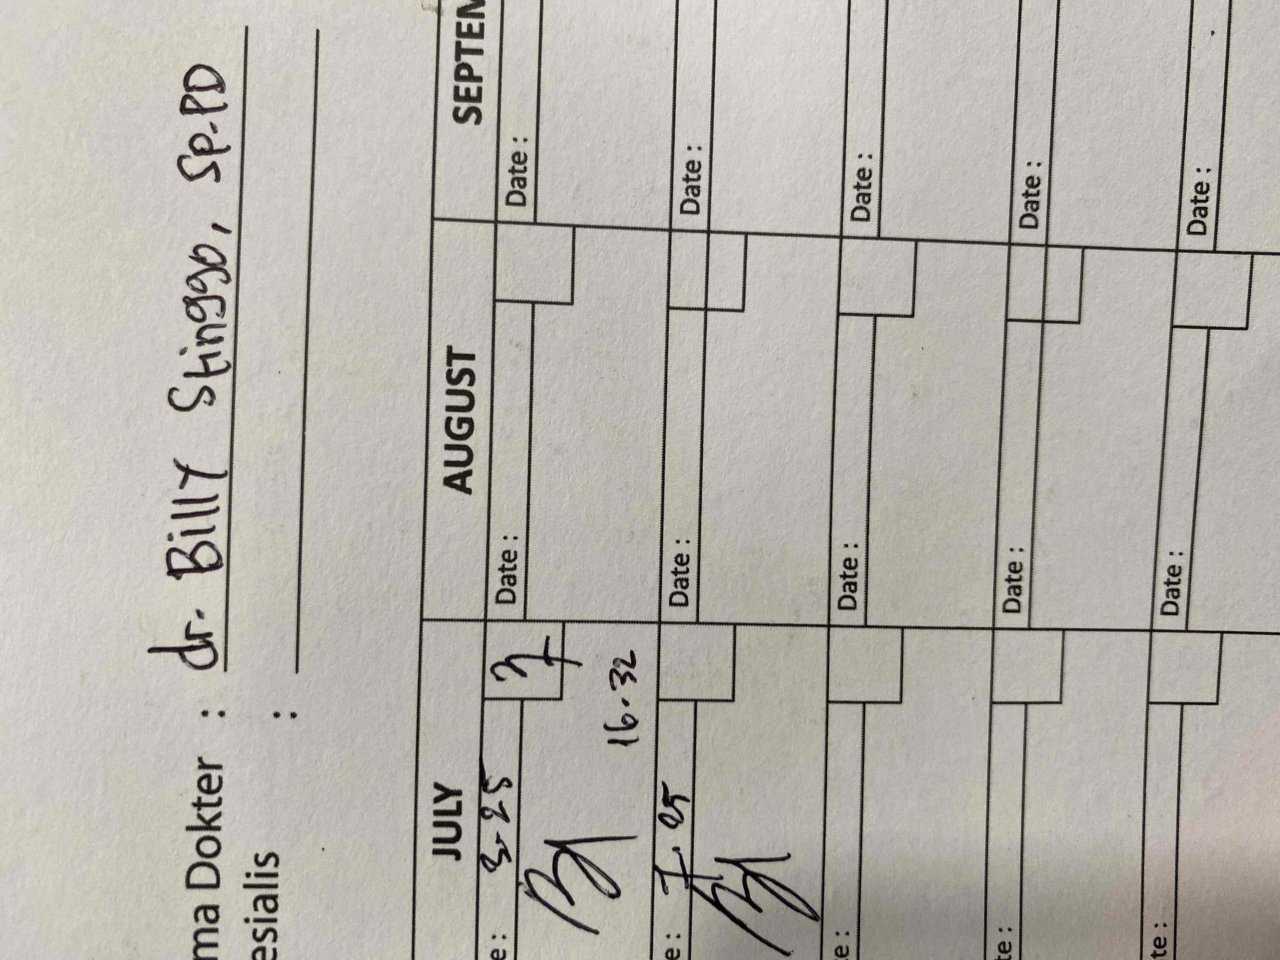 ma Dokter : dr. Billy Stinggo, Sp.PD
esialis :
JULY AUGUST SEPTEM
e: 3-25 7 Date : Date :
16.32
e: 7.25 Date : Date :
te : Date : Date :
te : Date : Date :
te : Date : Date :